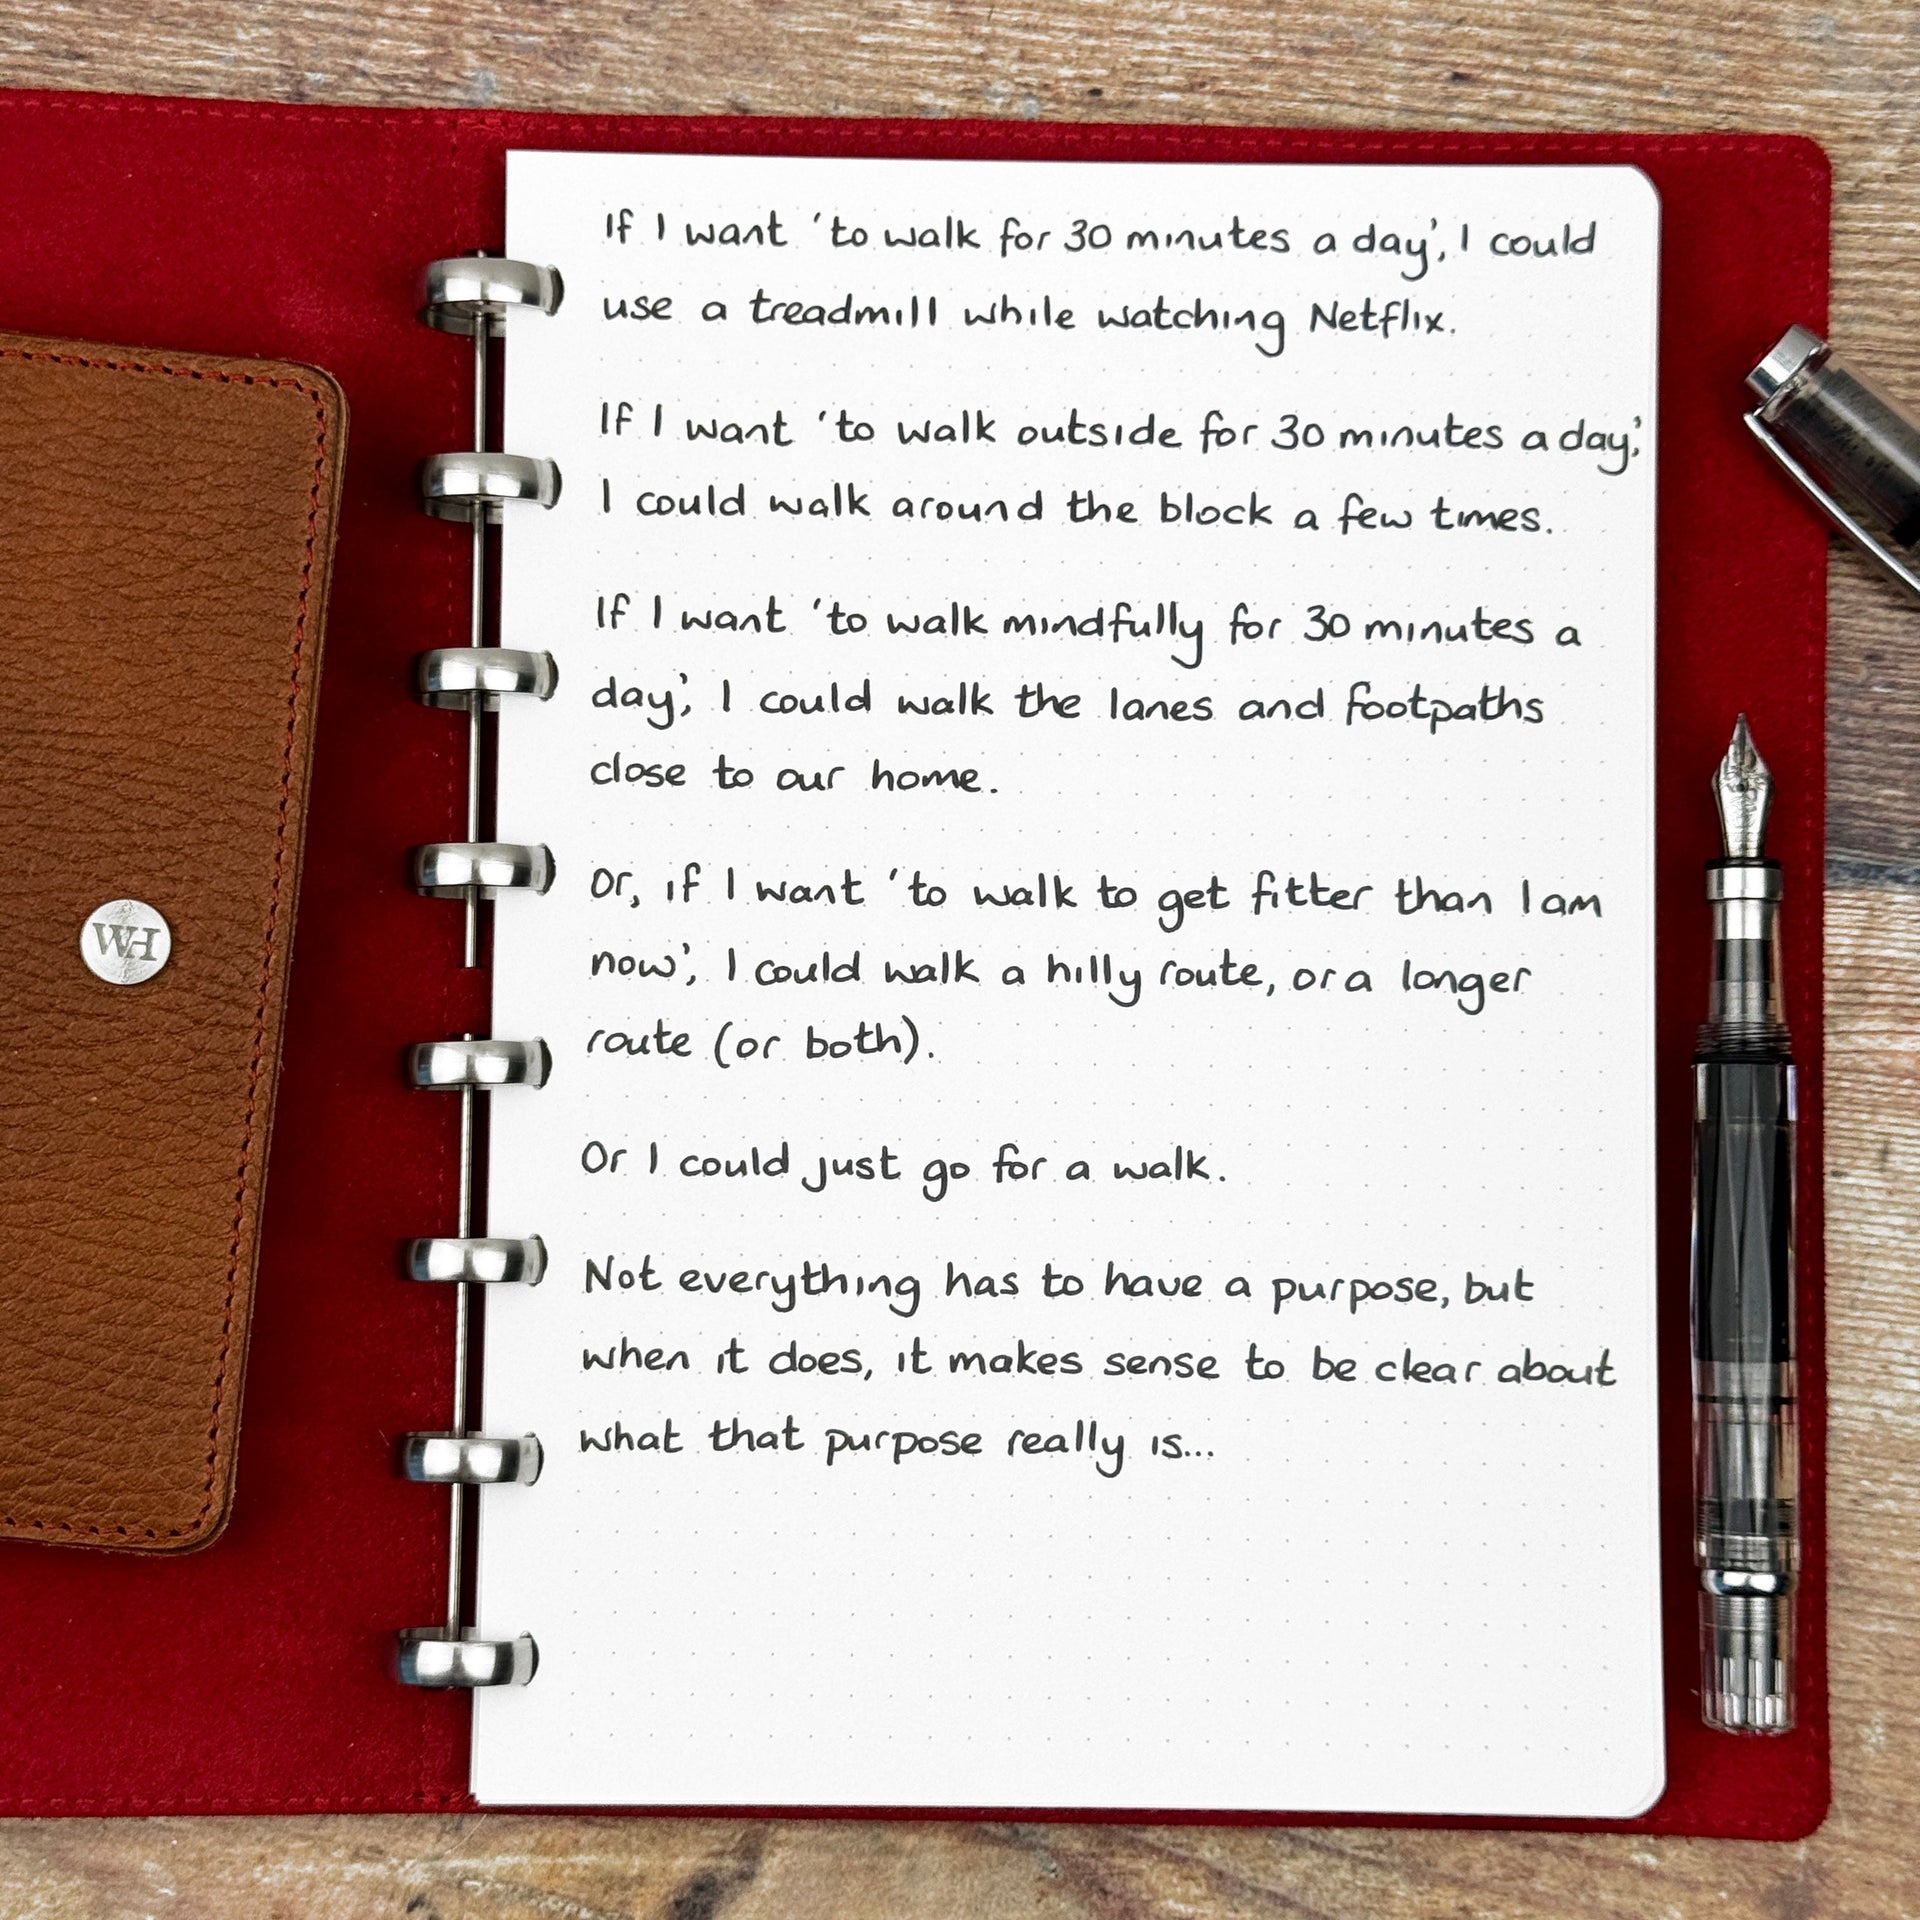 If I want 'to walk for 30 minutes a day', I could
use a treadmill while watching Netflix.
If I want 'to walk outside for 30 minutes a day',
I could walk around the block a few times.
If I want 'to walk mindfully for 30 minutes a
day', I could walk the lanes and footpaths
close to our home.
Or, if I want 'to walk to get fitter than I am
now', I could walk a hilly route, or a longer
route (or both).
Or I could just go for a walk.
Not everything has to have a purpose, but
when it does, it makes sense to be clear about
what that purpose really is...
WH